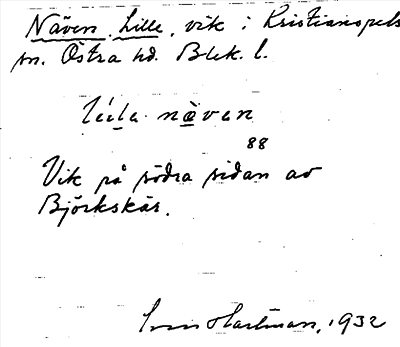 Näven, Lille, vik i Kristianopels
sn. Östra hd. Blek. l.
lìla nǟvən
88
Vik på södra sidan av
Björkskär.
Hartman, 1932